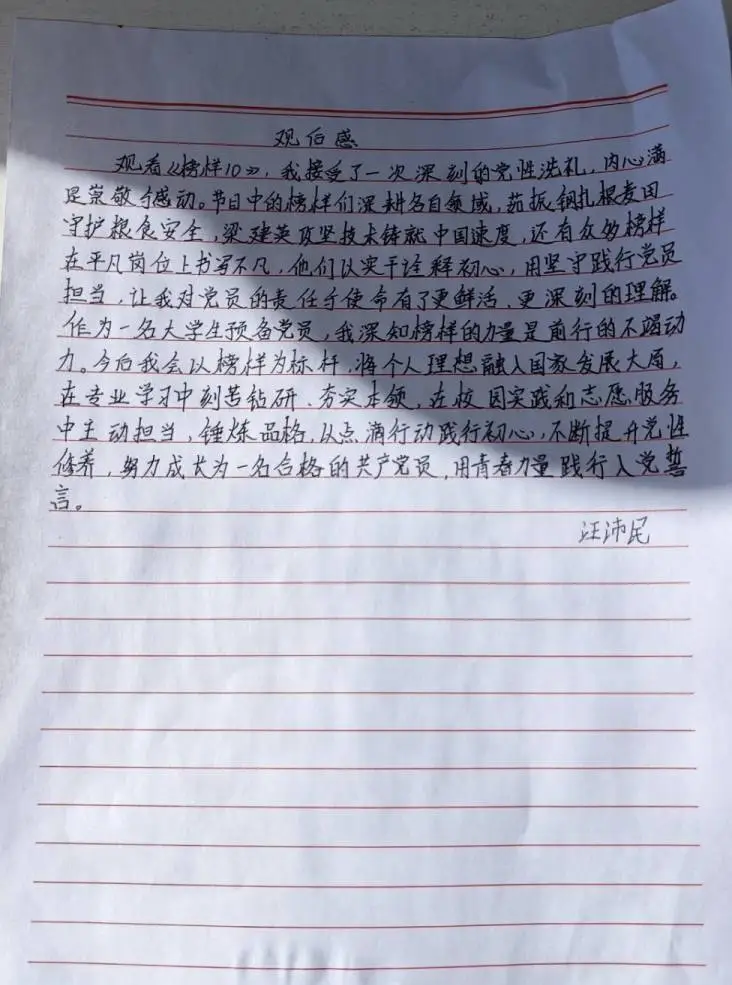 观后感
观看《榜样10》，我接受了一次深刻的党性洗礼，内心满
是崇敬与感动。节目中的榜样们深耕各自领域，茹振钢扎根麦田
守护粮食安全，梁建英攻坚技术铸就中国速度，还有众多榜样
在平凡岗位上书写不凡，他们以实干诠释初心，用坚守践行党员
担当，让我对党员的责任于使命有了更鲜活、更深刻的理解。
作为一名大学生预备党员，我深知榜样的力量是前行的不竭动
力。今后我会以榜样为标杆，将个人理想融入国家发展大局，
在专业学习中刻苦钻研、夯实本领，在校园实践和志愿服务
中主动担当，锤炼品格，从点滴行动践行初心，不断提升党性
修养，努力成长为一名合格的共产党员，用青春力量践行入党誓
言。
汪沛民